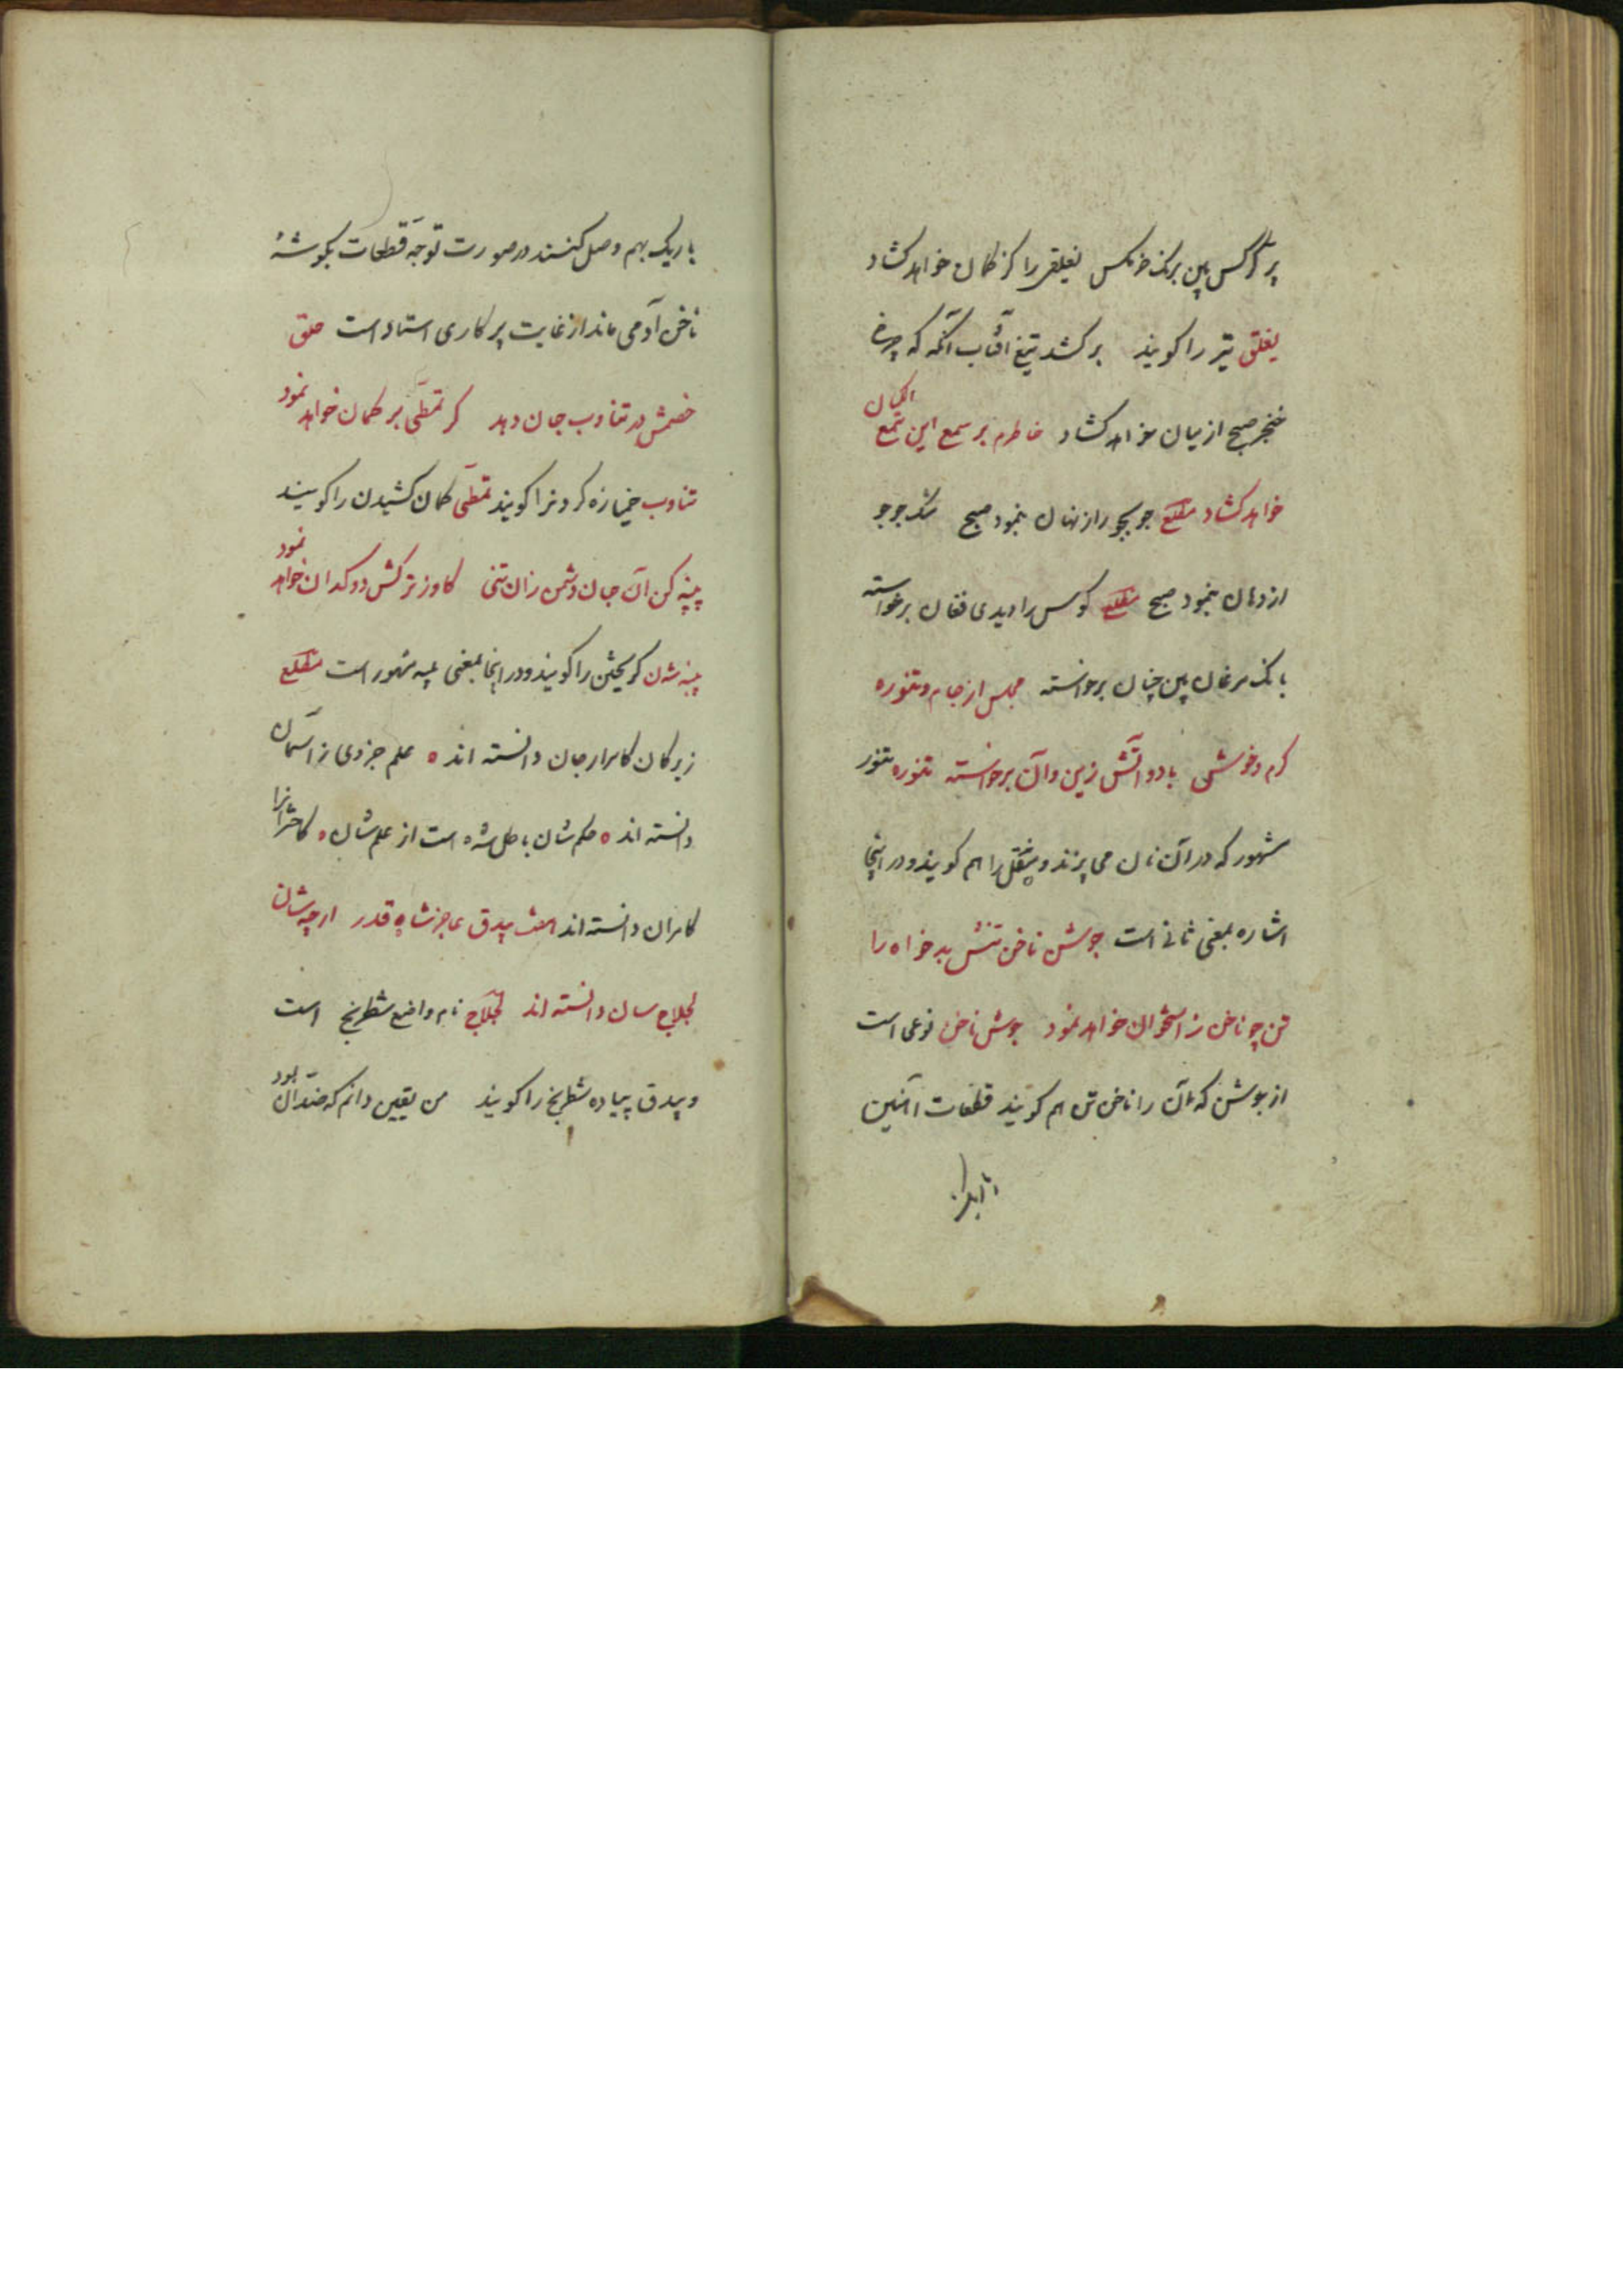 پر کرکس بین برنک خرمکس یغلقی را کز کمان خواهد کشاد
یغلق تیر را کویند برکشد تیغ آفتاب آنکه که چرخ
خنجر صبح از میان خواهد کشاد خاطرم بر سمع این تمع الکیان
خواهد کشاد مطلع جو بجو راز نهان بنمود صبح شد جوجو
از دهان بنمود صبح مطلع کوس را دیدی فغان برخواسته
بانک مرغان بین چنان برخواسته مجلس از جام و تنوره
کرم و خوش با دو آتش زین و آن برخواسته تنوره تنور
مشهور که در آن نان می پزند و منقل را هم کویند و در اینجا
اشاره بمعنی ثانی است جوشن ناخن تنش بدخواه را
تن چو ناخن ز استخوان خواهد نمود جوشن ناخن نوعی است
از جوشن که آن را ناخن تن هم کویند قطعات آهنین
باریک بهم وصل کنند در صورت توجه قطعات بکوشه
ناخن آدمی ماند از غایت پرکاری استاد است حلق
خصمش در تثاوب جان دهد کر تمطی بر کمان خواهد نمود
تثاوب خمیازه کردنرا کویند تمطی کمان کشیدن را کویند
پنبه کن آن جان دشمن زان تنی کاوز ترکش دوکدان خواهد نمود
پنبه شدن کریختن را کویند و در اینجا بمعنی پنبه مشهور است مطلع
زیرکان کاسرار جان دانسته اند علم جزوی ز آسمان
دانسته اند حکم شان باطل شده است از علم شان کاخترانرا
کامران دانسته اند هفت بیدق عاجز شاه قدر ارچه شان
لجلاج سان دانسته اند لجلاج نام واضع شطرنج است
و بیدق پیاده شطرنج را کویند من یقین دانم که ضد آن بود